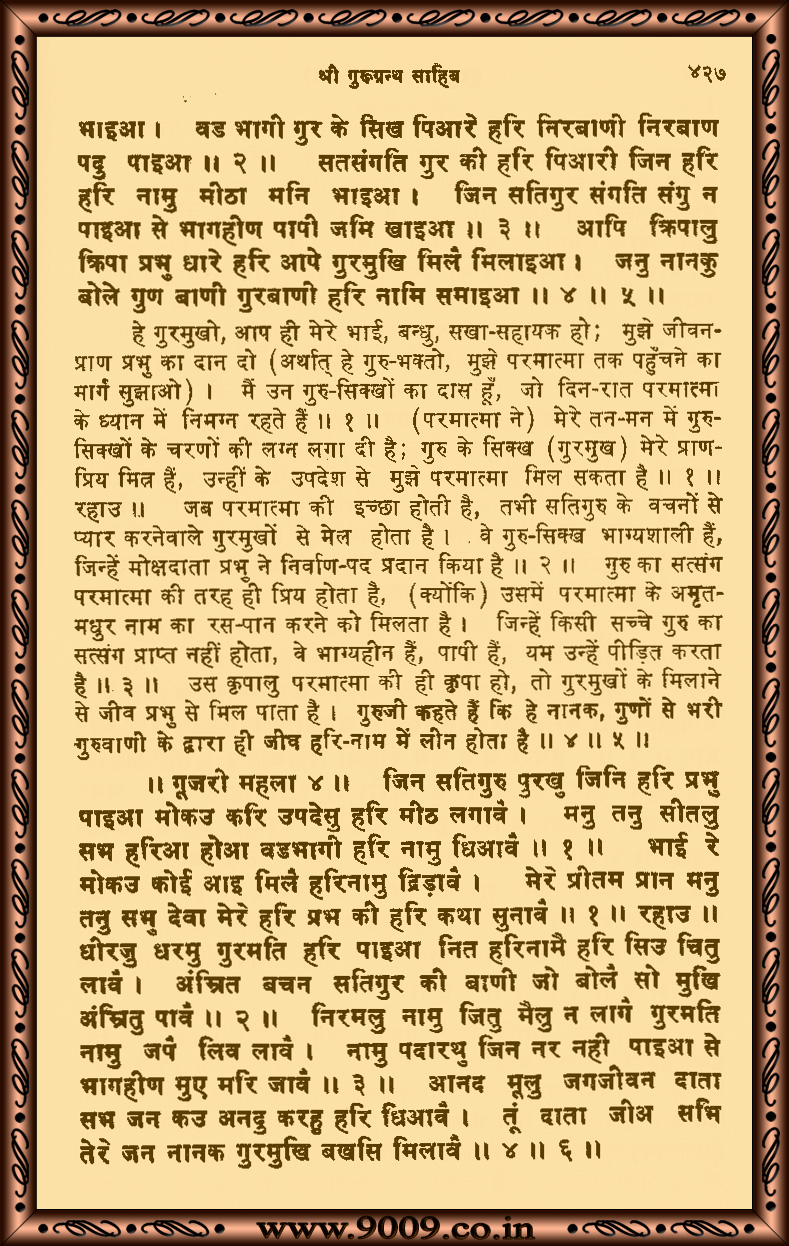 श्री गुरूग्रन्थ साहिब ४२७
भाइआ । वड भागी गुर के सिख पिआरे हरि निरबाणी निरबाण
पदु पाइआ ॥ २ ॥ सतसंगति गुर की हरि पिआरी जिन हरि
हरि नामु मीठा मनि भाइआ । जिन सतिगुर संगति संगु न
पाइआ से भागहीण पापी जमि खाइआ ॥ ३ ॥ आपि क्रिपालु
क्रिपा प्रभु धारे हरि आपे गुरमुखि मिलै मिलाइआ । जनु नानकु
बोले गुण बाणी गुरबाणी हरि नामि समाइआ ॥ ४ ॥ ५ ॥
हे गुरमुखो, आप ही मेरे भाई, बन्धु, सखा-सहायक हो; मुझे जीवन-
प्राण प्रभु का दान दो (अर्थात् हे गुरु-भक्तो, मुझे परमात्मा तक पहुँचने का
मार्ग सुझाओ) । मैं उन गुरु-सिक्खों का दास हूँ, जो दिन-रात परमात्मा
के ध्यान में निमग्न रहते हैं ॥ १ ॥ (परमात्मा ने) मेरे तन-मन में गुरु-
सिक्खों के चरणों की लग्न लगा दी है; गुरु के सिक्ख (गुरमुख) मेरे प्राण-
प्रिय मित्र हैं, उन्हीं के उपदेश से मुझे परमात्मा मिल सकता है ॥ १ ॥
रहाउ ॥ जब परमात्मा की इच्छा होती है, तभी सतिगुरु के वचनों से
प्यार करनेवाले गुरमुखों से मेल होता है । वे गुरु-सिक्ख भाग्यशाली हैं,
जिन्हें मोक्षदाता प्रभु ने निर्वाण-पद प्रदान किया है ॥ २ ॥ गुरु का सत्संग
परमात्मा की तरह ही प्रिय होता है, (क्योंकि) उसमें परमात्मा के अमृत-
मधुर नाम का रस-पान करने को मिलता है । जिन्हें किसी सच्चे गुरु का
सत्संग प्राप्त नहीं होता, वे भाग्यहीन हैं, पापी हैं, यम उन्हें पीड़ित करता
है ॥ ३ ॥ उस कृपालु परमात्मा की ही कृपा हो, तो गुरमुखों के मिलाने
से जीव प्रभु से मिल पाता है । गुरुजी कहते हैं कि हे नानक, गुणों से भरी
गुरुवाणी के द्वारा ही जीव हरि-नाम में लीन होता है ॥ ४ ॥ ५ ॥
॥ गूजरी महला ४ ॥ जिन सतिगुरु पुरखु जिनि हरि प्रभु
पाइआ मोकउ करि उपदेसु हरि मीठ लगावै । मनु तनु सीतलु
सभ हरिआ होआ वडभागी हरि नामु धिआवै ॥ १ ॥ भाई रे
मोकउ कोई आइ मिलै हरिनामु द्रिड़ावै । मेरे प्रीतम प्रान मनु
तनु सभु देवा मेरे हरि प्रभ की हरि कथा सुनावै ॥ १ ॥ रहाउ ॥
धीरजु धरमु गुरमति हरि पाइआ नित हरिनामै हरि सिउ चितु
लावै । अंम्रित बचन सतिगुर की बाणी जो बोलै सो मुखि
अंम्रितु पावै ॥ २ ॥ निरमलु नामु जितु मैलु न लागै गुरमति
नामु जपै लिव लावै । नामु पदारथु जिन नर नही पाइआ से
भागहीण मुए मरि जावै ॥ ३ ॥ आनद मूलु जगजीवन दाता
सभ जन कउ अनदु करहु हरि धिआवै । तूं दाता जीअ सभि
तेरे जन नानक गुरमुखि बखसि मिलावै ॥ ४ ॥ ६ ॥
www.9009.co.in